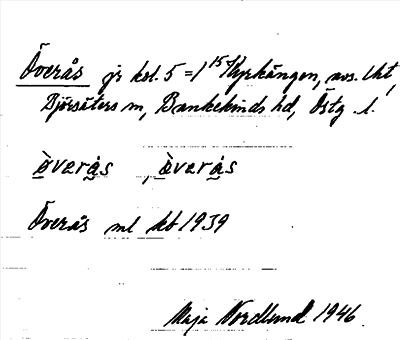 Överås jr kol. 5 = 1 15 Kyrkängen, avs. lht,
Björsäters sn, Bankekinds hd, Östg. l.
òveràs , òveràs
Överås ml kb 1939
Maja Nordlund 1946.